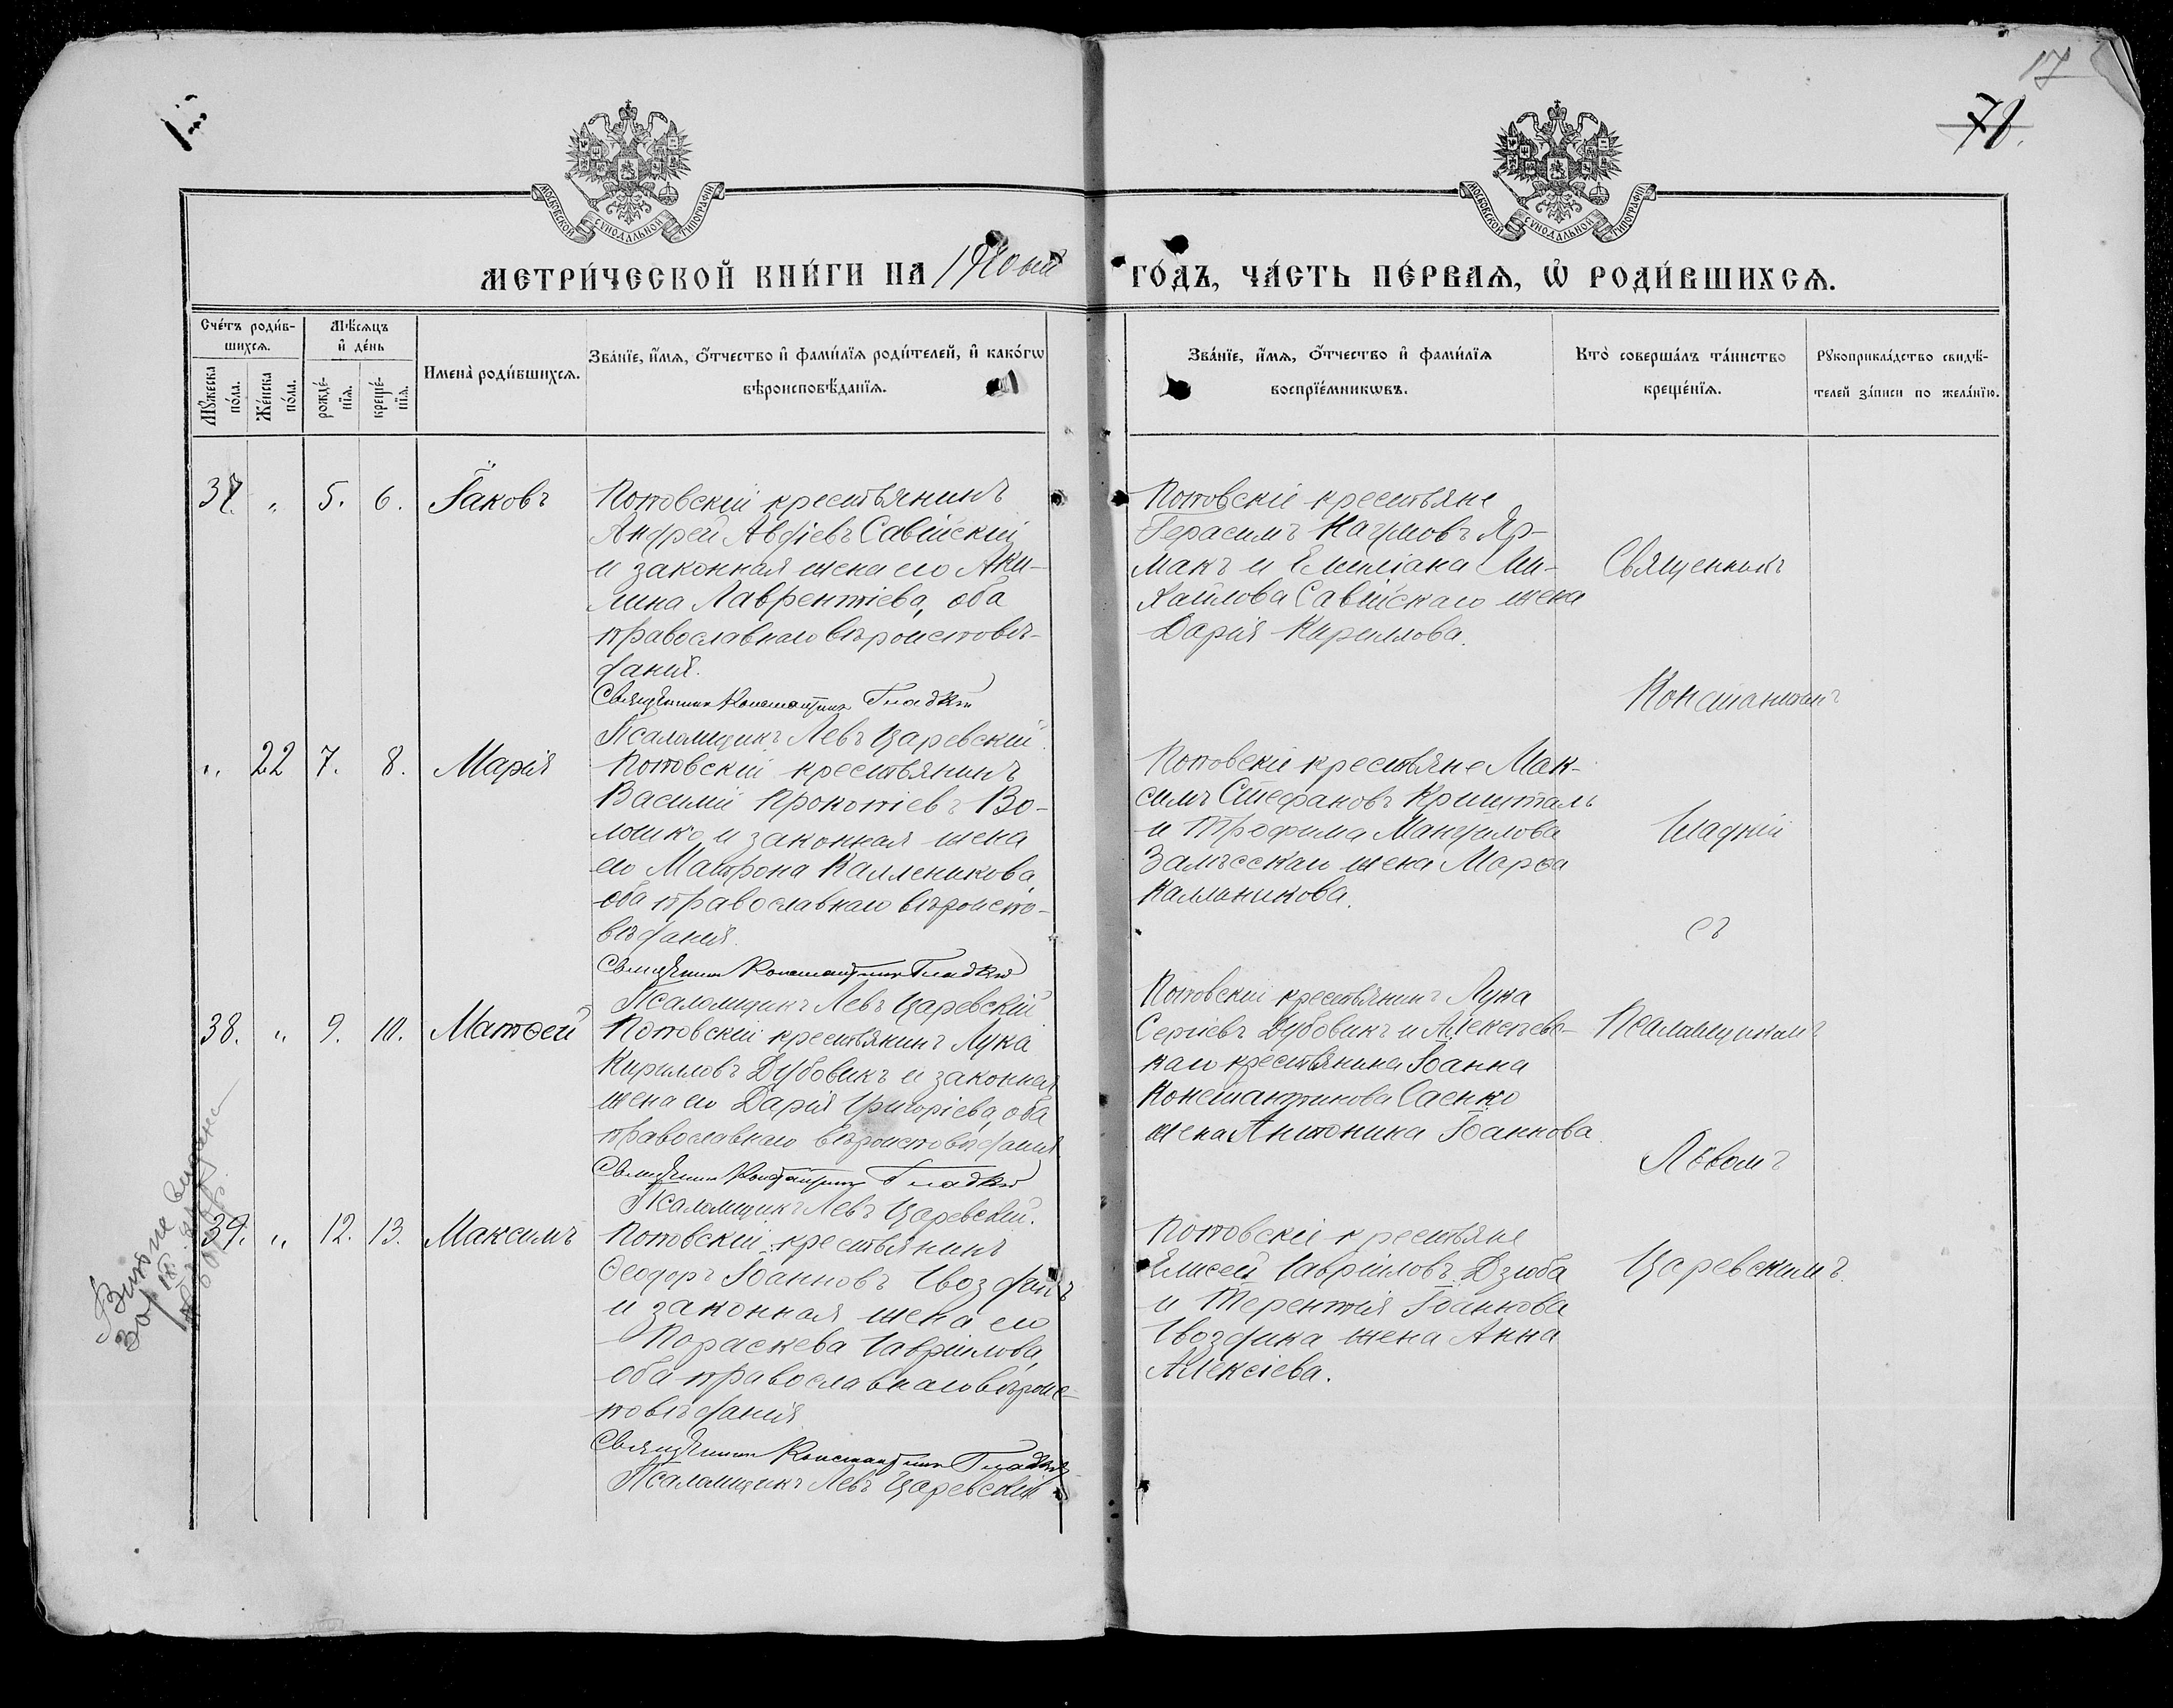 17
78.
МОСКОВСКОЙ СѴНОДАЛЬНОЙ ТИПОГРАФІИ
МОСКОВСКОЙ СѴНОДАЛЬНОЙ ТИПОГРАФІИ
МЕТРИ́ЧЕСКОЙ КНИ́ГИ НА 1920ый ГО́ДЪ, ЧА́СТЬ ПЕ́РВАѦ, Ѡ҆ РОДИ́ВШИХСѦ.
Сче́тъ роди́в-
шихсѧ.
Мꙋ́жеска
по́ла.
Же́нска
по́ла.
Мѣ́сѧцъ
и҆ де́нь
рожде́-
нїѧ.
креще́-
нїѧ.
Имена̀ роди́вшихсѧ.
Зва́нїе, и҆́мѧ, ѻ҆́тчество и҆ фами́лїѧ роди́телей, и҆ како́гѡ
вѣроисповѣ́данїѧ.
Зва́нїе, и҆́мѧ, ѻ҆́тчество и҆ фами́лїѧ
воспрїе́мникѡвъ.
Кто̀ соверша́лъ та́инство
креще́нїѧ.
Рꙋкоприкла́дство свидѣ́-
телей за́писи по жела́нїю.
37. „ 5. 6. Іаковъ
Поповскій крестьянинъ
Андрей Авдіевъ Савійскій
и законная жена его Аки-
лина Лаврентіева, оба
православнаго вѣроисповѣ-
данія.
Священникъ Константинъ Гладкій
Псаломщикъ Левъ Царевскій.
Поповскіе крестьяне
Герасимъ Наумовъ Яр-
макъ и Емиліана Ми-
хайлова Савійскаго жена
Дарія Кириллова.
„ 22 7. 8. Марія
Поповскій крестьянинъ
Василій Прокопіевъ Во-
лошко и законная жена
его Матрона Каллиникова,
оба православнаго вѣроиспо-
вѣданія.
Священникъ Константинъ Гладкій
Псаломщикъ Левъ Царевскій
Поповскіе крестьяне Мак-
симъ Стефановъ Кришталь
и Трофима Мануилова
Залѣсскаго жена Марѳа
Каллиникова.
38. „ 9. 10. Матѳей
Поповскій крестьянинъ Лука
Кирилловъ Дубовикъ и законная
жена его Дарія Григоріева, оба
православнаго вѣроисповѣданія
Священникъ Константинъ Гладкій
Псаломщикъ Левъ Царевскій.
Поповскій крестьянинъ Лука
Сергіевъ Дубовикъ и Алексѣевс-
каго крестьянина Іоанна
Константинова Саенко
жена Антонина Іоаннова.
39. „ 12. 13. Максимъ
Поповскій крестьянинъ
Ѳеодоръ Іоанновъ Гвоздикъ
и законная жена его
Параскева Гавріилова,
оба православнаго вѣроис-
повѣданія
Священникъ Константинъ Гладкій
Псаломщикъ Левъ Царевскій
Поповскіе крестьяне
Елисей Гавріиловъ Дзюба
и Терентія Іоаннова
Гвоздика жена Анна
Алексіева.
Священникъ
Константинъ
Гладкій
съ
Псаломщикомъ
Львомъ
Царевскимъ.